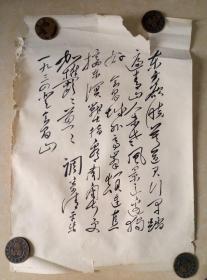 东方欲晓莫道君行早踏
遍青山人未老风景这边独
好会昌城外高峰颠连直
接东溟战士指看南粤更
加郁郁葱葱调寄清平乐
一九三四